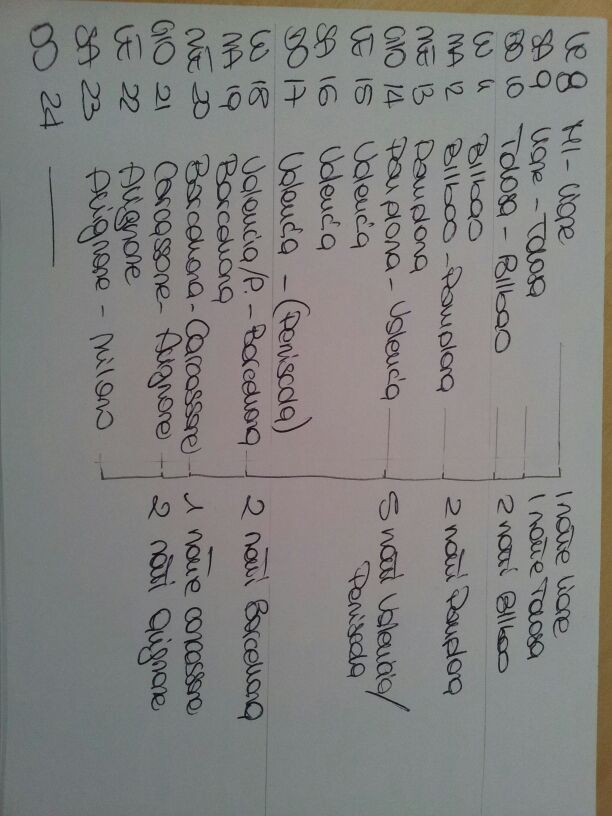 VE 8 MI - Uzge 1 notte Uzge
SA 9 Uzge - Tolosa 1 notte Tolosa
DO 10 Tolosa - Bilbao 2 notti Bilbao
LU 11 Bilbao
MA 12 Bilbao - Pamplona 2 notti Pamplona
ME 13 Pamplona
GIO 14 Pamplona - Valencia 5 notti Valencia/
Peniscola
VE 15 Valencia
SA 16 Valencia
DO 17 Valencia - (Peniscola)
LU 18 Valencia/P. - Barcellona 2 notti Barcellona
MA 19 Barcellona
ME 20 Barcellona - Carcassone 1 notte Carcassone
GIO 21 Carcassone - Avignone 2 notti Avignone
VE 22 Avignone
SA 23 Avignone - Milano
DO 24